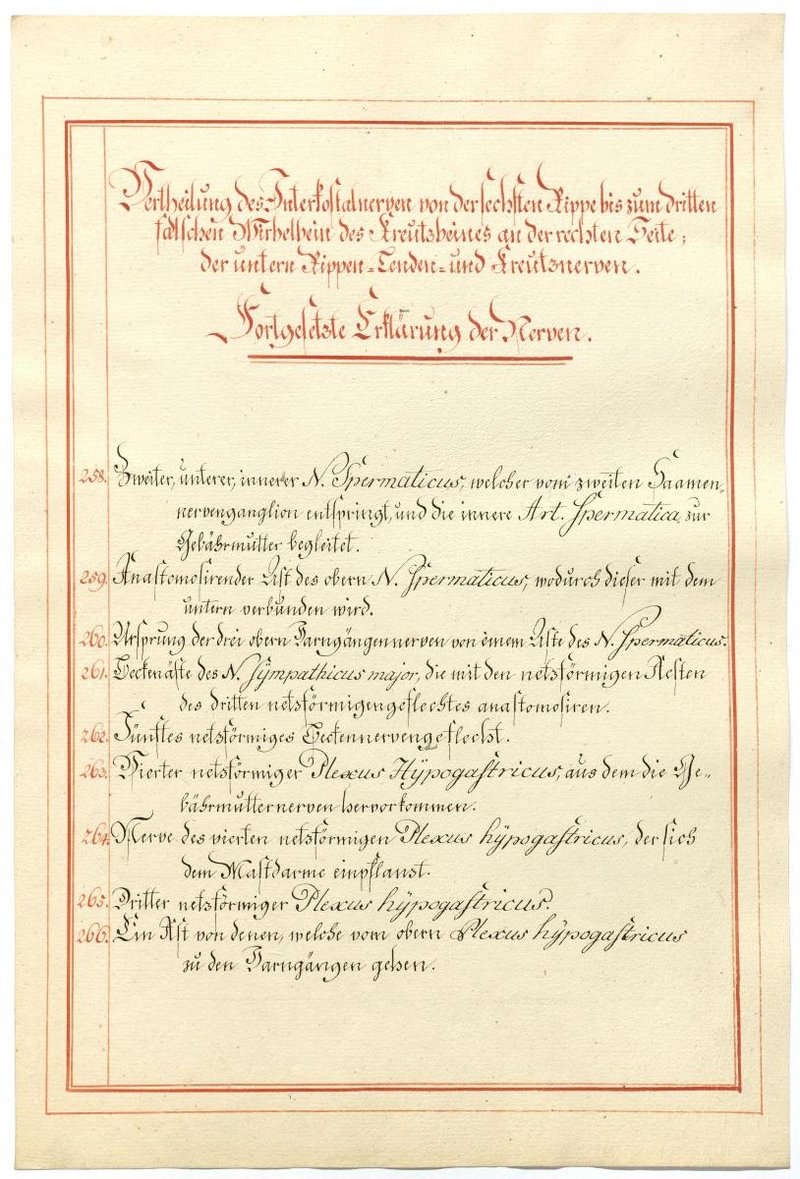 Vertheilung des Interkostalnerven von der sechsten Rippe bis zum dritten
falschen Wirbelbein des Kreutzbeines an der rechten Seite;
der untern Rippen-Lenden- und Kreutznerven.
Fortgesetzte Erklärung der Nerven.
258. Zweiter, unterer, innerer N. Spermaticus, welcher vom zweiten Saamen-
nervenganglion entspringt, und die innere Art. Spermatica zur
Gebährmutter begleitet.
259. Anastomosirender Ast des obern N. Spermaticus, wodurch dieser mit dem
untern verbunden wird.
260. Ursprung der drei obern Harngängennerven von einem Aste des N. Spermaticus.
261. Beckenäste des N. Sympathicus major, die mit den netzförmigen Aesten
des dritten netzförmigengeflechtes anastomosiren.
262. Fünftes netzförmiges Beckennervengeflecht.
263. Vierter netzförmiger Plexus Hÿpogastricus, aus dem die Ge-
bährmutternerven hervorkommen.
264. Nerve des vierten netzförmigen Plexus hÿpogastricus, der sich
dem Mastdarme einpflanzt.
265. Dritter netzförmiger Plexus hÿpogastricus.
266. Ein Ast von denen, welche vom obern Plexus hÿpogastricus
zu den Harngängen gehen.